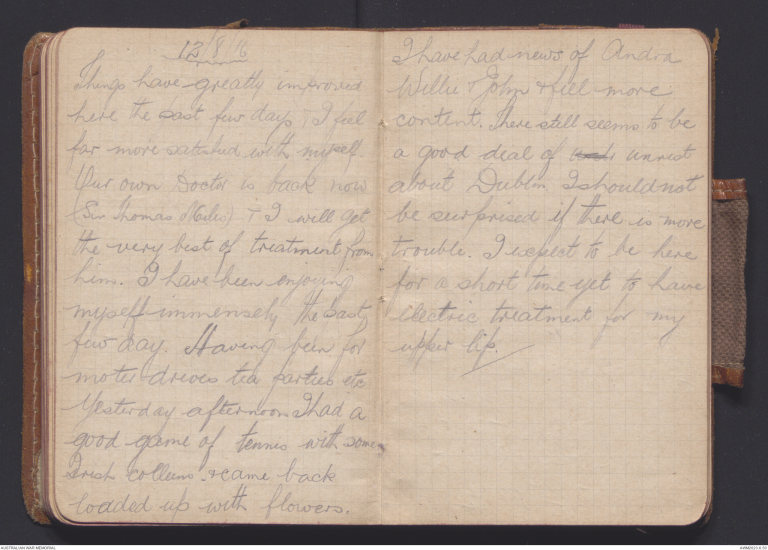 13/8/16
Things have greatly improved
here the last few days & I feel
far more satisfied with myself.
Our own Doctor is back now
(Sir Thomas Miles) & I will get
the very best of treatment from
him. I have been enjoying
myself immensely the last
few day. Having been for
moter drives tea parties etc
Yesterday afternoon I had a
good game of tennis with some
Irish colleens & came back
loaded up with flowers.
I have had news of Andra
Willie & John & feel more
content. There still seems to be
a good deal of unrest
about Dublin I should not
be surprised if there is more
trouble. I expect to be here
for a short time yet to have
electric treatment for my
upper lip.
AUSTRALIAN WAR MEMORIAL